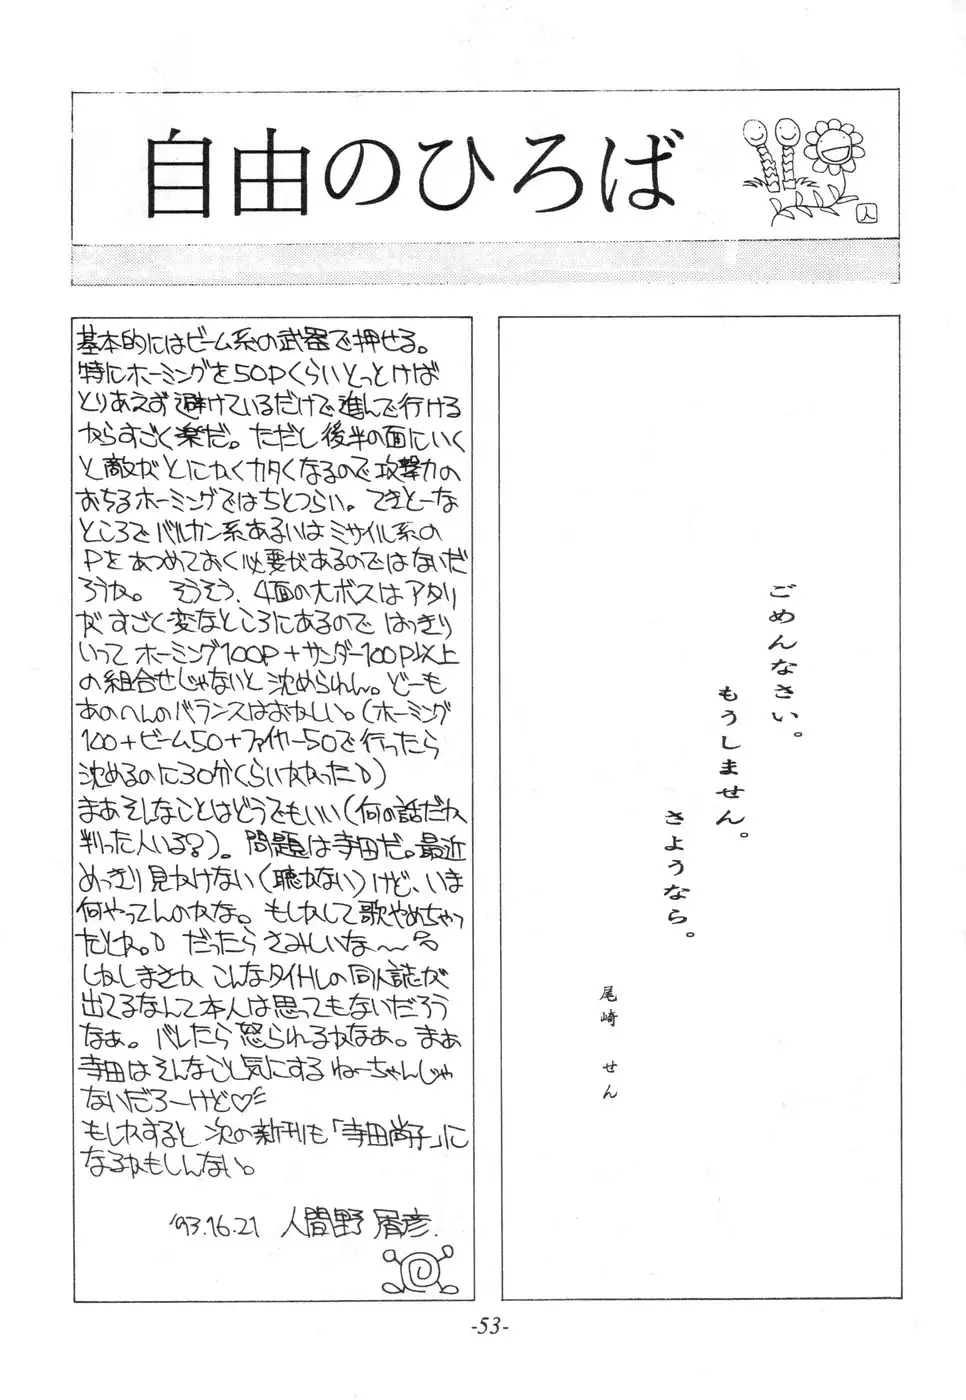 自由のひろば
人
基本的にはビーム系の武器で押せる。
特にホーミングを50Pくらいとっとけば
とりあえず避けているだけで進んで行ける
からすごく楽だ。ただし後半の面にいく
と敵がとにかくカタくなるので攻撃力の
おちるホーミングではちとつらい。てきとーな
ところでバルカン系あるいはミサイル系の
Pをあつめておく必要があるのではないだ
ろうか。そうそう、4面の大ボスはアタリ
がすごく変なところにあるのではっきり
いってホーミング100P+サンダー100P以上
の組合せじゃないと沈められん。どーも
あのへんのバランスはおかしい。(ホーミング
100+ビーム50+ファイヤー50で行ったら
沈めるのに30分くらいかかった)
まあそんなことはどうでもいい(何の話だか
判った人いる?)。問題は寺田だ。最近
めっきり見かけない(聴かない)けど、いま
何やってんのかな。もしかして歌やめちゃっ
たとか。だったらさみしいな〜
しかしまさか こんなタイトルの同人誌が
出てるなんて本人は思ってもないだろう
なぁ。バレたら怒られるかなぁ。まぁ
寺田はそんなこと気にするねーちゃんじゃ
ないだろーけど♡
もしかすると 次の新刊も「寺田尚子」に
なるかもしんない。
'93.16.21 人間野 屑彦.
ごめんなさい。
もうしません。
さようなら。
尾崎 せん
-53-